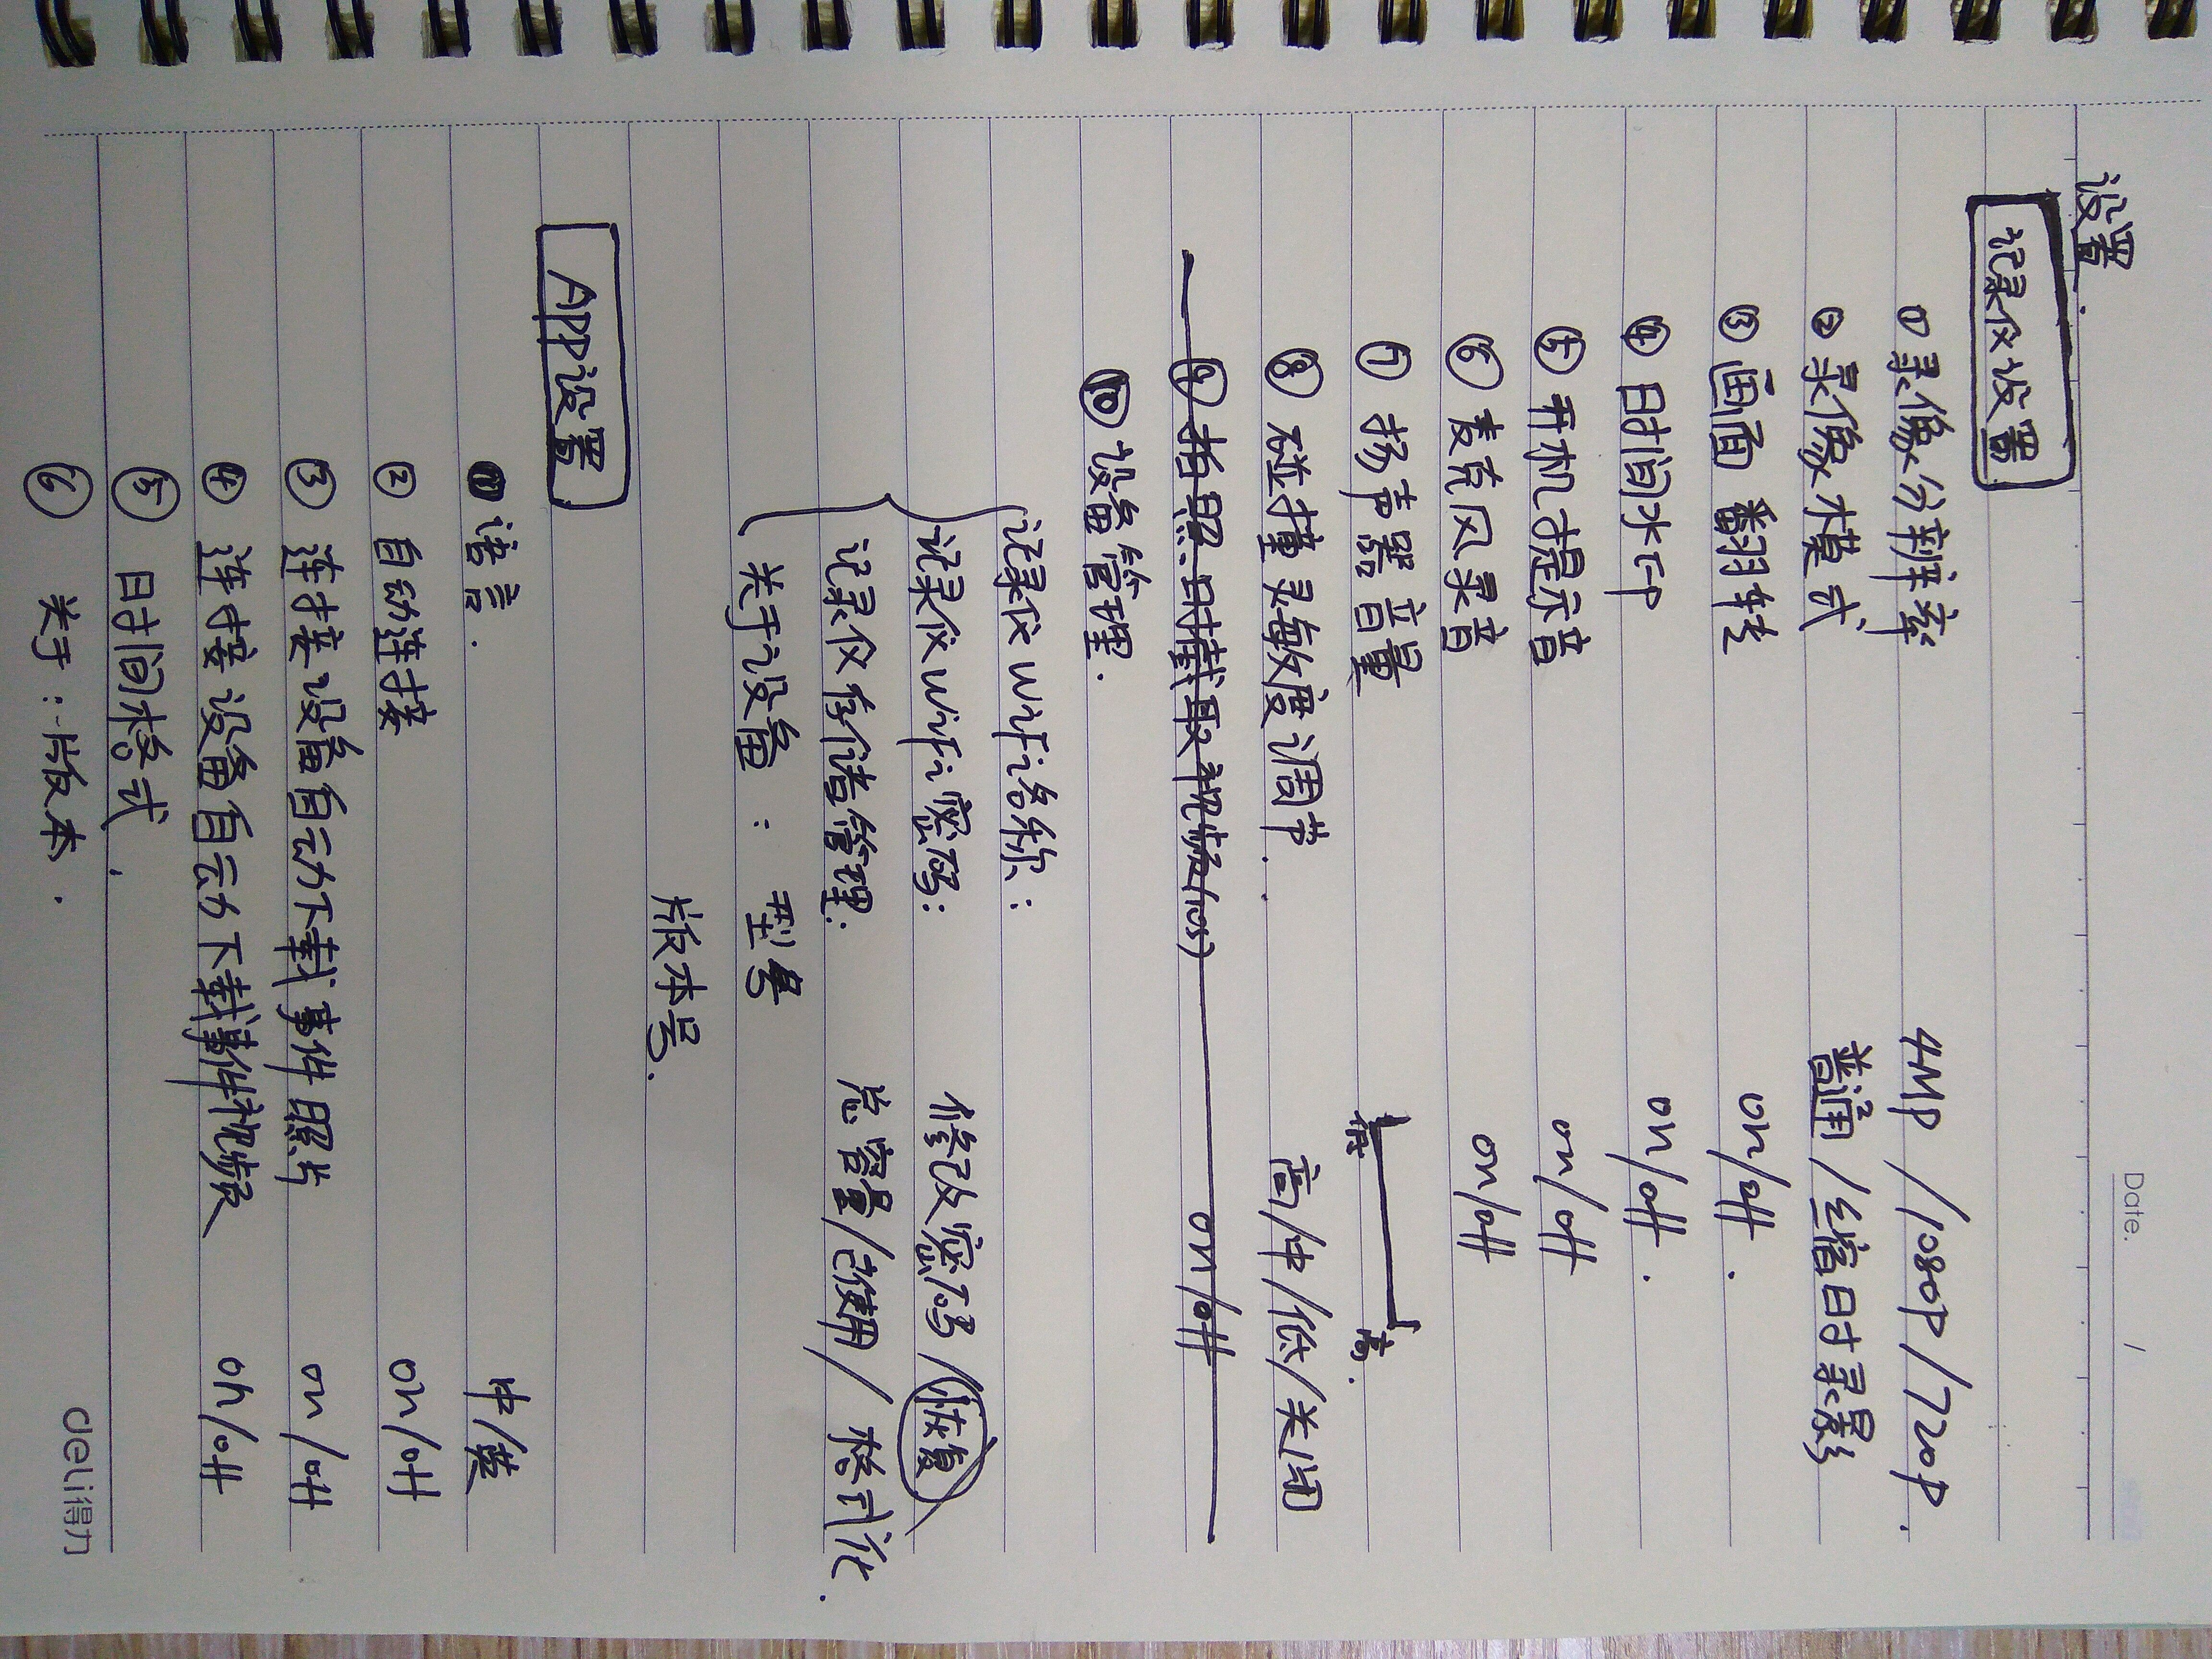 Date. /
设置.
记录仪设置
① 录像分辨率 4MP / 1080P / 720P.
② 录像模式 普通 / 缩时录影
③ 画面翻转 on/off.
④ 时间水印 on/off.
⑤ 开机提示音 on/off
⑥ 麦克风录音 on/off
⑦ 扬声器音量 低 高.
⑧ 碰撞灵敏度调节. 高/中/低/关闭
⑨ 拍照时截取视频(10s) on/off
⑩ 设备管理.
记录仪wifi名称:
记录仪wifi密码: 修改密码/恢复
记录仪存储管理: 总容量/已使用/格式化.
关于设备: 型号
版本号.
APP设置
① 语言. 中/英
② 自动连接 on/off
③ 连接设备自动下载事件照片 on/off
④ 连接设备自动下载事件视频 on/off
⑤ 时间格式.
⑥ 关于: 版本.
deli得力